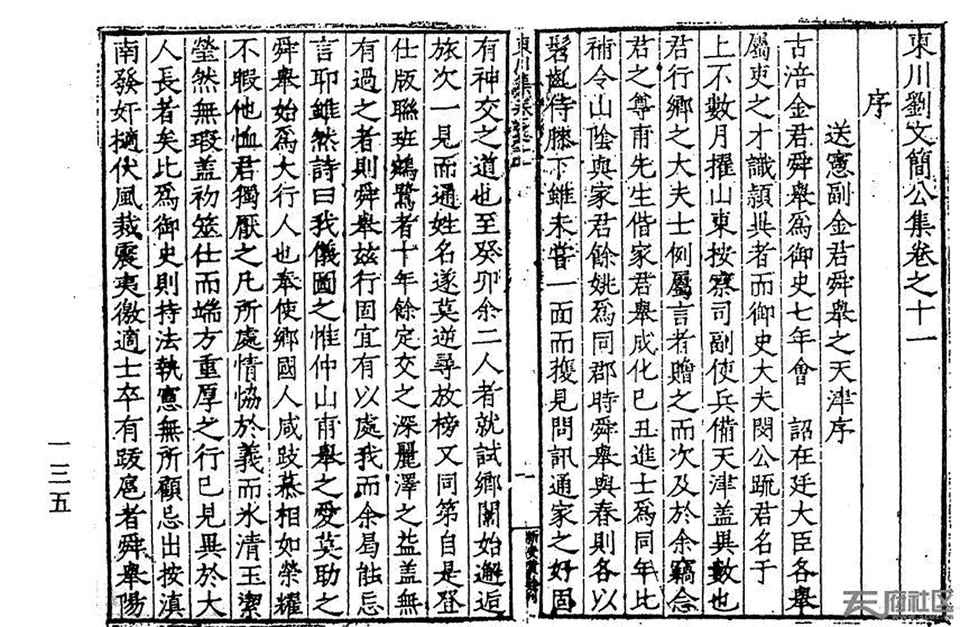 東川劉文簡公集卷之十一
序
送憲副金君舜舉之天津序
古涪金君舜舉爲御史七年會 詔在廷大臣各舉
屬吏之才識頴異者而御史大夫閔公䟽君名于
上不數月擢山東按察司副使兵備天津盖異數也
君行鄉之大夫士例屬言者贈之而次及於余竊念
君之尊甫先生偕家君舉成化己丑進士爲同年比
補令山陰與家君餘姚爲同郡時舜舉與春則各以
髫齔侍膝下雖未甞一面而獲見問訊通家之好固
東川集卷之十一
一
有神交之道也至癸卯余二人者就試鄉闈始邂逅
旅次一見而通姓名遂莫逆尋放榜又同第自是登
仕版聯班鵷鷺者十年餘定交之深麗澤之益盖無
有過之者則舜舉兹行固宜有以處我而余曷能忘
言耶雖然詩曰我儀圖之惟仲山甫舉之愛莫助之
舜舉始爲大行人也奉使鄉國人咸歧慕相如榮耀
不暇他恤君獨厭之凡所處情協於義而氷清玉潔
瑩然無瑕盖初筮仕而端方重厚之行已見異於大
人長者矣比爲御史則持法執憲無所顧忌出按滇
南發奸擿伏風裁震夷徼適士卒有跋扈者舜舉陽
一三五
府社区